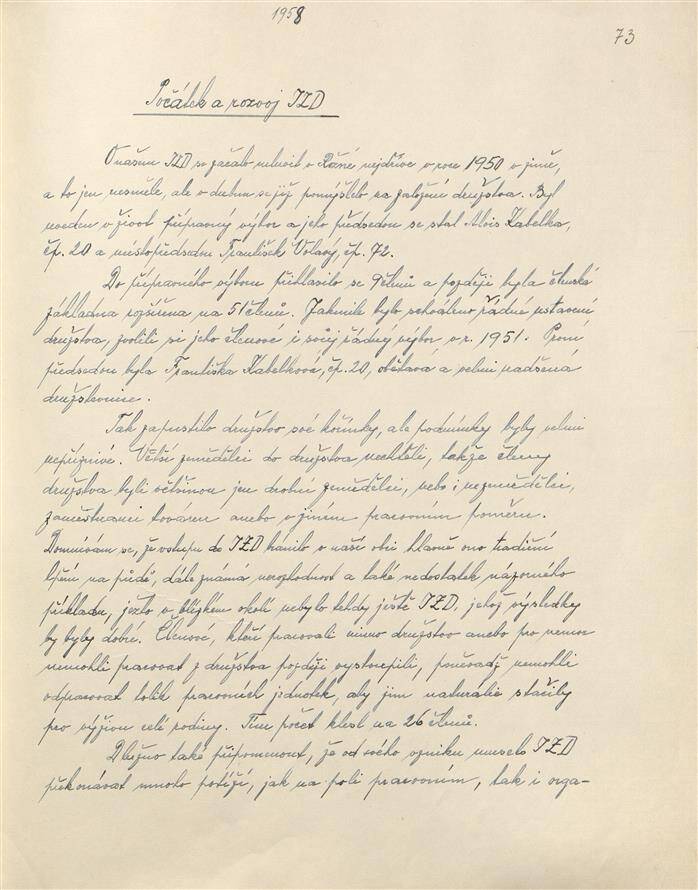 1958
73
Počátek a rozvoj JZD
O našem JZD se začalo mluvit v Říčné nejdříve v roce 1950 v zimě,
a to jen nesměle, ale v dubnu se již pomýšlelo na založení družstva. Byl
uveden v život přípravný výbor a jeho předsedou se stal Alois Kabelka,
čp. 20 a místopředsedou František Volavý, čp. 72.
Do přípravného výboru přihlásilo se 9 členů a později byla členská
základna rozšířena na 51 členů. Jakmile bylo schváleno řádné ustavení
družstva, zvolili si jeho členové i svůj řádný výbor v r. 1951. První
předsedou byla Františka Kabelková, čp. 20, obětavá a velmi nadšená
družstevnice.
Tak zapustilo družstvo své kořínky, ale podmínky byly velmi
nepříznivé. Větší zemědělci do družstva nechtěli, takže členy
družstva byli většinou jen drobní zemědělci, nebo i nezemědělci,
zaměstnanci továren anebo v jiném pracovním poměru.
Domnívám se, že vstupu do JZD bránilo v naší obci hlavně ono tradiční
lpění na půdě, dále známá nerozhodnost a také nedostatek názorného
příkladu, jezto v blízkém okolí nebylo tehdy ještě JZD, jehož výsledky
by byly dobré. Členové, kteří pracovali mimo družstvo anebo pro nemoc
nemohli pracovat z družstva později vystoupili, poněvadž nemohli
odpracovat tolik pracovních jednotek, aby jim naturálie stačily
pro výživu celé rodiny. Tím počet klesl na 26 členů.
Dlužno také připomenout, že od svého vzniku muselo JZD
překonávat mnoho potíží, jak na poli pracovním, tak i orga-